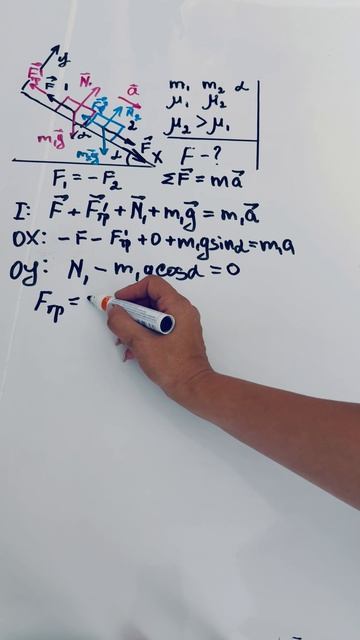 y
F⃗'тр F⃗ 1 N⃗₁ a⃗
F⃗тр N⃗₂
m₁g⃗ α 2 F⃗
m₂g⃗ α X
m₁ m₂ α
μ₁ μ₂
μ₂ > μ₁
F - ?
F₁ = -F₂ ΣF⃗ = ma⃗
I: F⃗ + F⃗'тр + N⃗₁ + m₁g⃗ = m₁a⃗
OX: -F - F'тр + 0 + m₁gsinα = m₁a
Oy: N₁ - m₁gcosα = 0
Fтр =